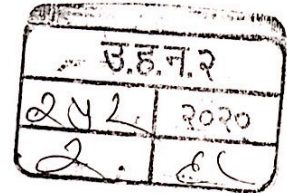 उ.ह.न.२
२५२ २०२०
२. ८८